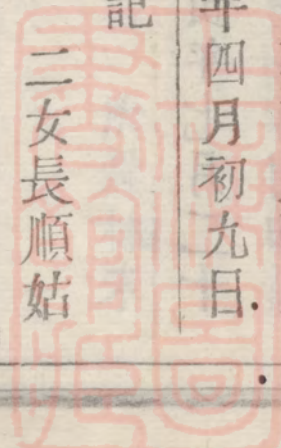 年四月初九日
記
二女長順姑